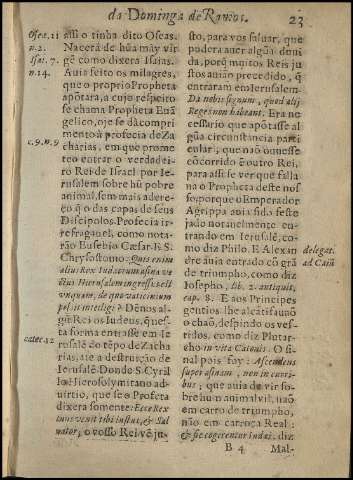 da Dominga de Ramos. 23
Osee. 11
n. 2.
Isai. 7.
n. 14.
c. 9. n. 9
catec. 12
assi o tinha dito Oseas.
Nacerá de hũa may vir
gẽ como dixera Isaias.
Auia feito os milagres,
que o proprio Propheta
apõtara, a cujo respeito
se chama Propheta Euã
gelico, oje se dà compri
mento à profecia de Za
charias, em que prome
teo entrar o verdadei-
ro Rei de Israel por Ie-
rusalem sobre hũ pobre
animal, sem mais adere-
ço q̃ o das capas de seus
Discipolos. Profecia ir-
refragauel, como nota-
rão Eusebio Cæsar. E S.
Chrysostomo: Quis enim
alius Rex Iudæorum asina ve
ctus Hierosolymam ingressus est
vnquam, de quo vaticinium
possit intelligi? Dẽnos al-
gũ Rei os Iudeus, que s-
ta forma entrasse em Ie
rusalẽ do tẽpo de Zacha
rias, ate a destruição de
Ierusalẽ. Donde S. Cyril
lo Hierosolymitano ad-
uirtio, que se o Profeta
dixera somente: Ecce Rex
tuus venit tibi iustus, & Sal
uator; o vosso Rei vẽ ju-
sto, para vos saluar, que
podera auer algũa duui
da, porq̃ muitos Reis ju
stos auião precedido, q̃
entraram em Ierusalem.
Da nobis signum, quod alij
Reges non habeant. Era ne
cessario que apõtasse al
gũa circunstancia parti
cular, que não ouuesse
cõcorrido ẽ outro Rei,
para assi se ver que falla
na o Propheta deste nos
so, porque o Emperador
Agrippa auia sido feste
jado notauelmente en-
trando em Ierusalẽ, co-
mo diz Philo. E Alexan
dre auia entrado cõ grã
de triumpho, como diz
Iosepho, lib. 2. antiquit.
cap. 8. E aos Principes
gentios lhe alcatifauão
o chão, despindo os ves-
tidos, como diz Plutar-
cho in vita Catonis. O si-
nal pois foy: Ascendens
super asinam, non in curri-
bus; que auia de vir sob-
re hum animal vil, não
em carro de triumpho,
não em carroça Real:
& sic cogerentur Iudæi, diz
delegat.
ad Caiũ
B 4 Mal-